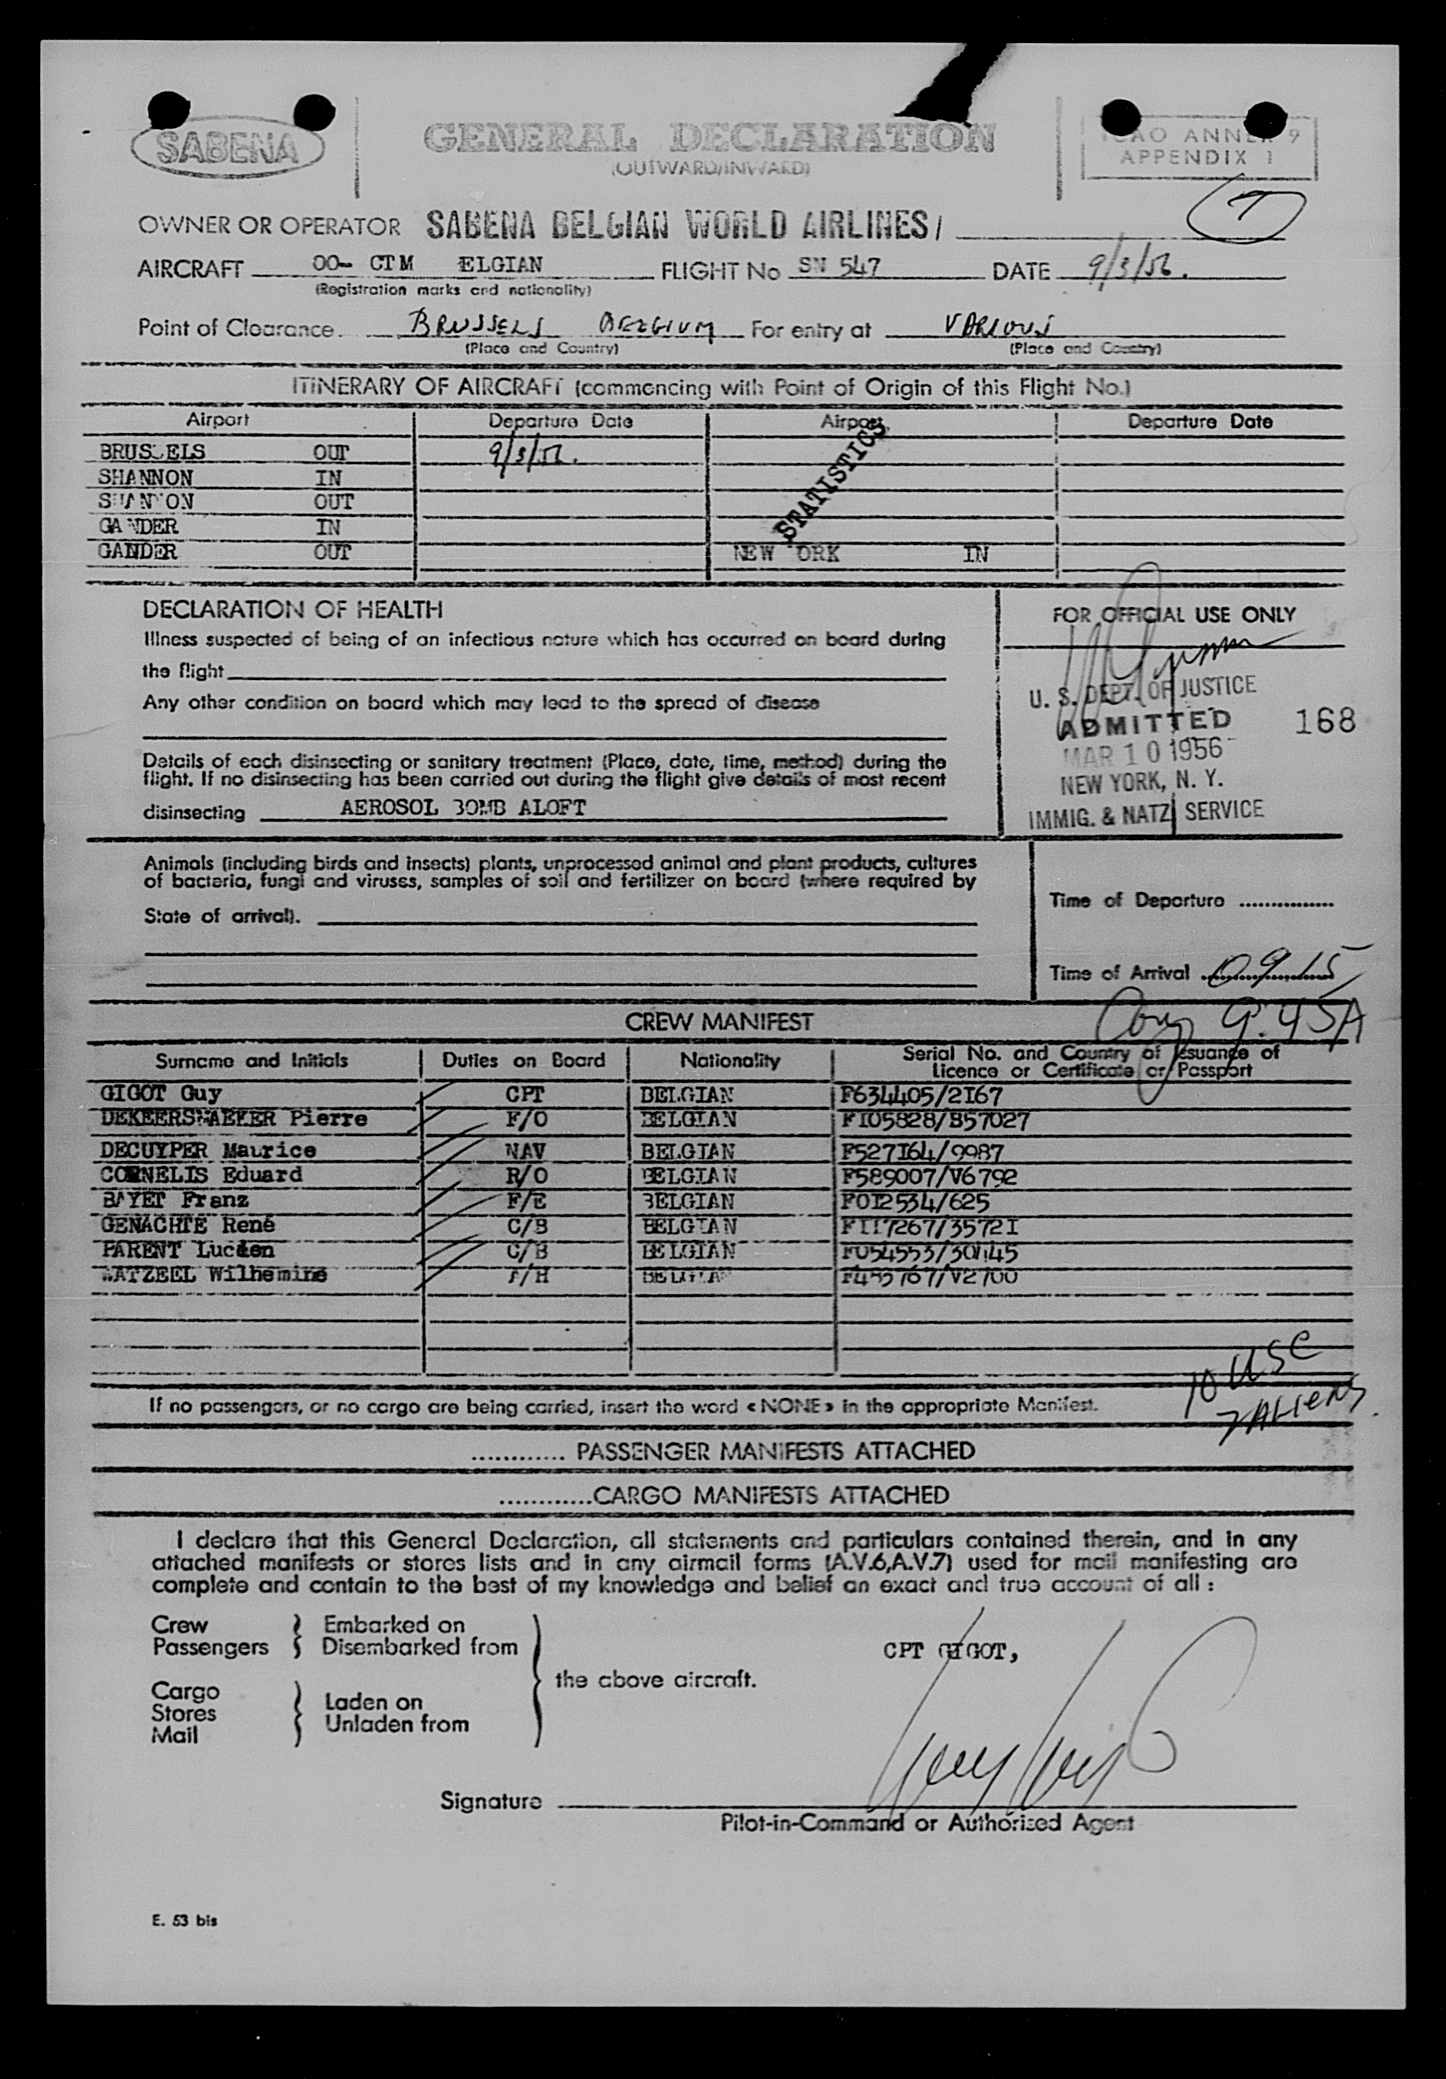 SABENA
GENERAL DECLARATION
(OUTWARD/INWARD)
ICAO ANNEX 9
APPENDIX 1
7
OWNER OR OPERATOR SABENA BELGIAN WORLD AIRLINES/
AIRCRAFT OO- CTM ELGIAN FLIGHT No SN 547 DATE 9/3/56.
(Registration marks and nationality)
Point of Clearance BRUSSELS BELGIUM For entry at VARIOUS
(Place and Country) (Place and Country)
ITINERARY OF AIRCRAFT (commencing with Point of Origin of this Flight No.)
Airport Departure Date Airport Departure Date
BRUSSELS OUT 9/3/56.
SHANNON IN
SHANNON OUT
GANDER IN
GANDER OUT NEW YORK IN
STATISTICS
DECLARATION OF HEALTH
Illness suspected of being of an infectious nature which has occurred on board during
the flight
Any other condition on board which may lead to the spread of disease
Details of each disinsecting or sanitary treatment (Place, date, time, method) during the
flight. If no disinsecting has been carried out during the flight give details of most recent
disinsecting AEROSOL BOMB ALOFT
FOR OFFICIAL USE ONLY
U. S. DEPT. OF JUSTICE
ADMITTED 168
MAR 10 1956
NEW YORK, N. Y.
IMMIG. & NATZ SERVICE
Animals (including birds and insects) plants, unprocessed animal and plant products, cultures
of bacteria, fungi and viruses, samples of soil and fertilizer on board (where required by
State of arrival).
Time of Departure ...............
Time of Arrival 0915
9.45A
CREW MANIFEST
Surname and Initials Duties on Board Nationality Serial No. and Country of Issuance of
Licence or Certificate or Passport
GIGOT Guy CPT BELGIAN F634405/2I67
DEKEERSMAEKER Pierre F/O BELGIAN FI05828/B57027
DECUYPER Maurice NAV BELGIAN F527I64/9987
CORNELIS Eduard R/O BELGIAN F589007/V6792
BAYET Franz F/E BELGIAN F0I2534/625
GENACHTE René C/B BELGIAN FII7267/3572I
PARENT Lucien C/B BELGIAN F054553/30445
WATZEEL Wilhemine A/H BELGIAN
10 USC
7 ALIENS.
If no passengers, or no cargo are being carried, insert the word « NONE » in the appropriate Manifest.
............ PASSENGER MANIFESTS ATTACHED
............CARGO MANIFESTS ATTACHED
I declare that this General Declaration, all statements and particulars contained therein, and in any
attached manifests or stores lists and in any airmail forms (A.V.6,A.V.7) used for mail manifesting are
complete and contain to the best of my knowledge and belief an exact and true account of all :
Crew Embarked on
Passengers Disembarked from
the above aircraft.
Cargo
Stores Laden on
Mail Unladen from
CPT GIGOT,
Signature
Pilot-in-Command or Authorised Agent
E. 53 bis